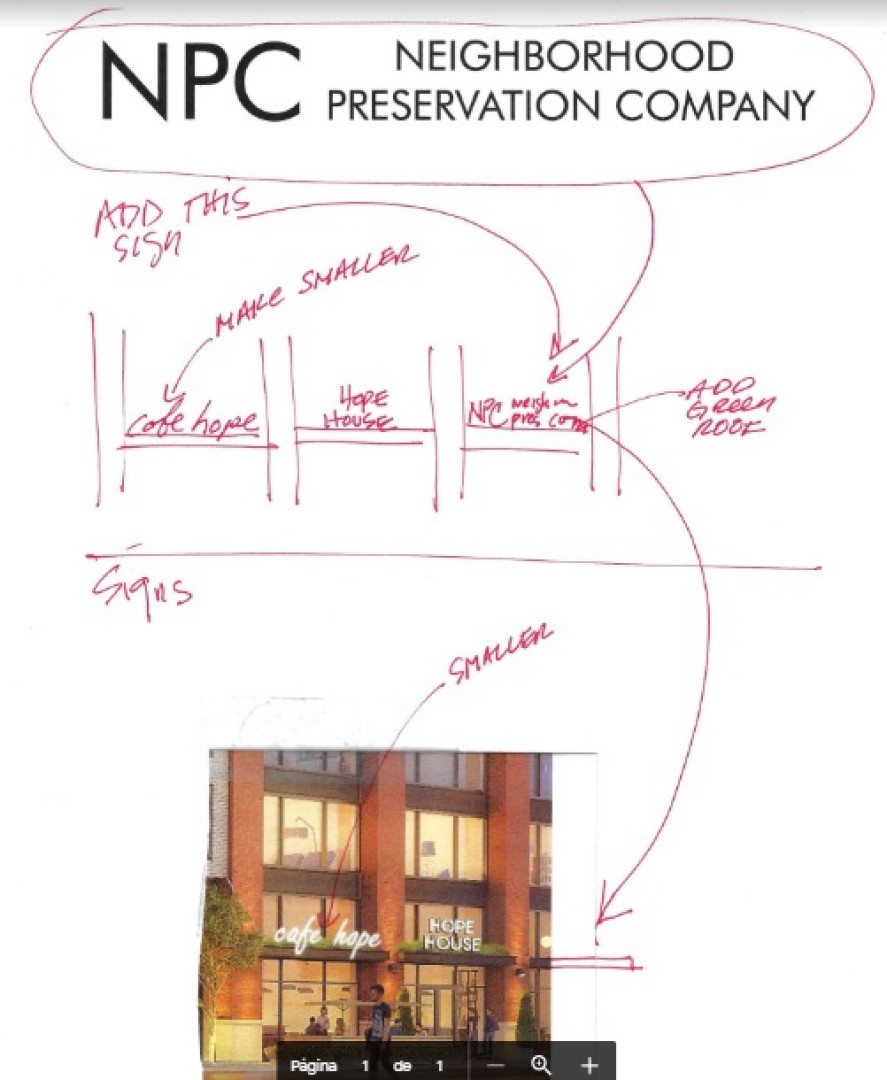 NPC
NEIGHBORHOOD
PRESERVATION COMPANY
ADD THIS
SIGN
MAKE SMALLER
cafe hope
HOPE
HOUSE
NPC
pres com
ADD
GREEN
ROOF
Signs
SMALLER
cafe hope
HOPE
HOUSE
Página 1 de 1